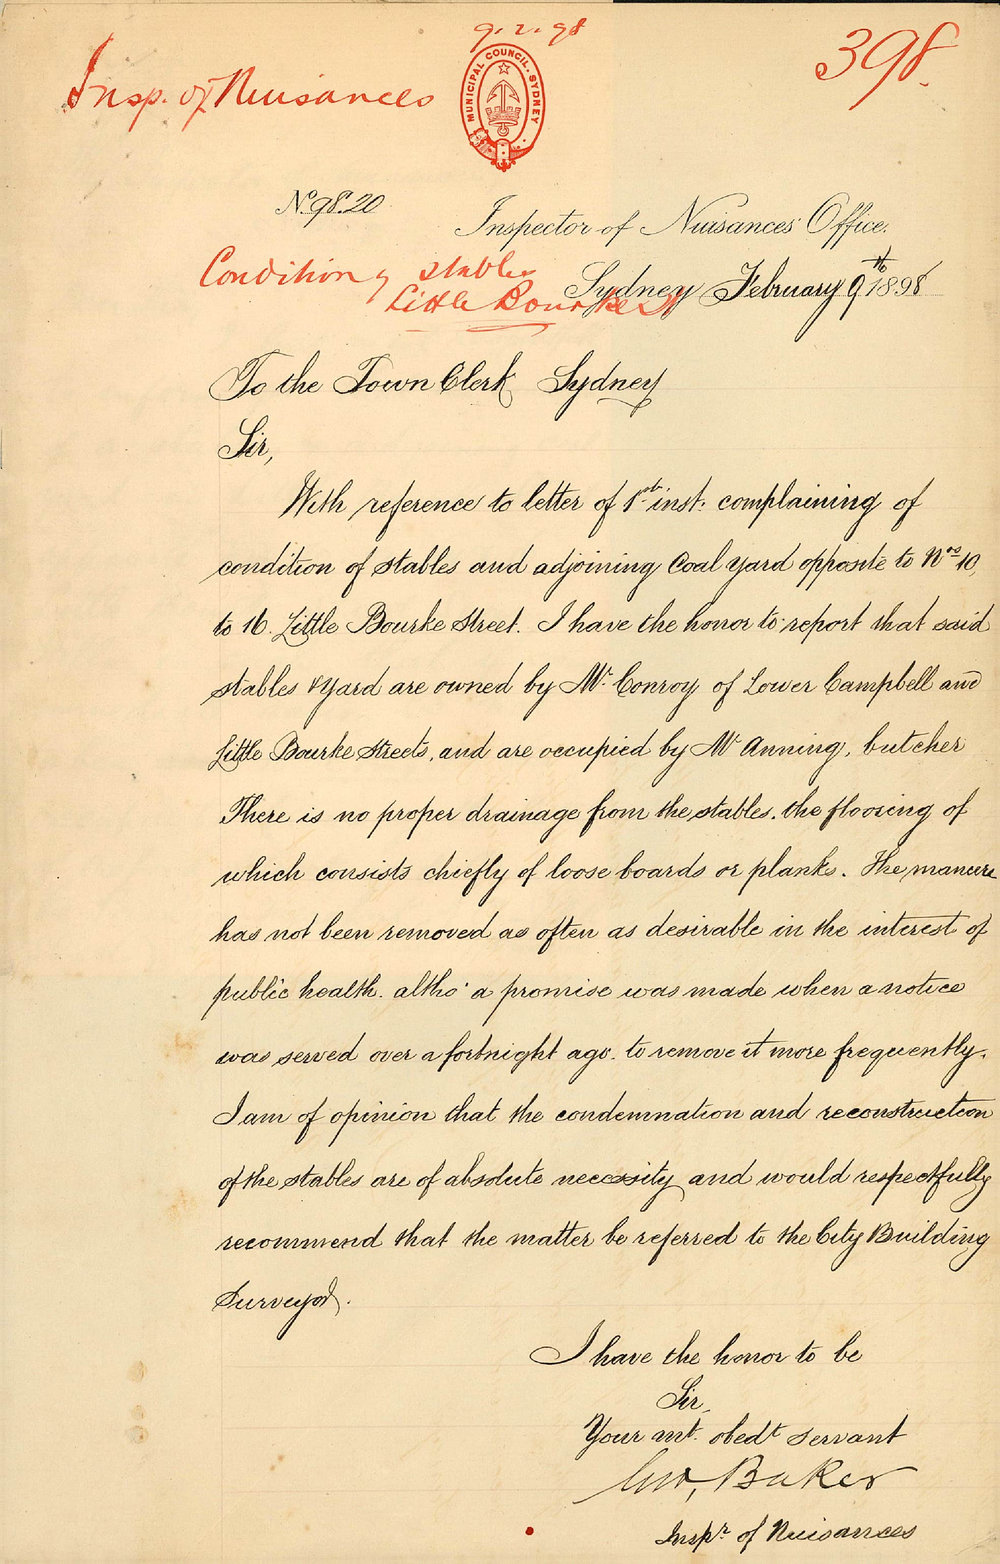 9.2.98
Insp. of Nuisances
398.
MUNICIPAL COUNCIL. SYDNEY
No. 98.20
Inspector of Nuisances Office.
Condition of stables
Little Bourke St
Sydney February 9th 1898
To the Town Clerk Sydney
Sir,
With reference to letter of 1st inst. complaining of
condition of stables and adjoining Coal yard opposite to Nos 10,
to 16. Little Bourke Street. I have the honor to report that said
stables & yard are owned by Mr. Conroy of Lower Campbell and
Little Bourke Streets, and are occupied by Mr Anning, butcher
There is no proper drainage from the stables. the flooring of
which consists chiefly of loose boards or planks. The manure
has not been removed as often as desirable in the interest of
public health. altho' a promise was made when a notice
was served over a fortnight ago. to remove it more frequently.
I am of opinion that the condemnation and reconstruction
of the stables are of absolute necessity and would respectfully
recommend that the matter be referred to the City Building
Surveyor.
I have the honor to be
Sir,
Your mt. obedt servant
Geo, Baker
Inspr. of Nuisances